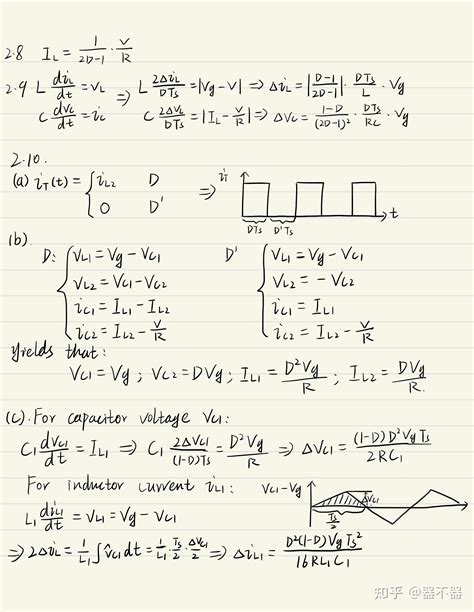 2.8 I_L = 1/(2D-1) · V/R
2.9 L di_L/dt = v_L ⇒ L 2Δi_L/DTs = |Vg-V| ⇒ Δi_L = |(D-1)/(2D-1)| · DTs/L · Vg
C dv_C/dt = i_C C 2ΔV_C/DTs = |I_L - V/R| ⇒ ΔV_C = (1-D)/(2D-1)² · DTs/RC · Vg
2.10.
(a) i_T(t) = { i_L2 D
0 D' ⇒ i_T
DTs D'Ts t
(b).
D: { V_L1 = Vg - V_C1 D' { V_L1 = Vg - V_C1
V_L2 = V_C1 - V_C2 V_L2 = -V_C2
i_C1 = I_L1 - I_L2 i_C1 = I_L1
i_C2 = I_L2 - V/R i_C2 = I_L2 - V/R
yields that:
V_C1 = Vg ; V_C2 = DVg ; I_L1 = D²Vg/R ; I_L2 = DVg/R.
(c). For capacitor voltage V_C1:
C_1 dV_C1/dt = I_L1 ⇒ C_1 2ΔV_C1/(1-D)Ts = D²Vg/R ⇒ ΔV_C1 = (1-D)D²VgTs/2RC_1
For inductor current i_L1: V_C1-Vg
L_1 di_L1/dt = V_L1 = Vg - V_C1 Ts/2 ΔV_C1
⇒ 2Δi_L1 = 1/L_1 ∫ v̂_C1 dt = 1/L_1 · Ts/2 · ΔV_C1/2 ⇒ Δi_L1 = D²(1-D)VgTs²/16RL_1C_1
知乎 @器不器